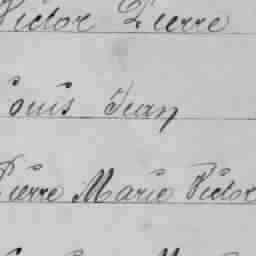 Victor Pierre
Louis Jean
Pierre Marie Victor